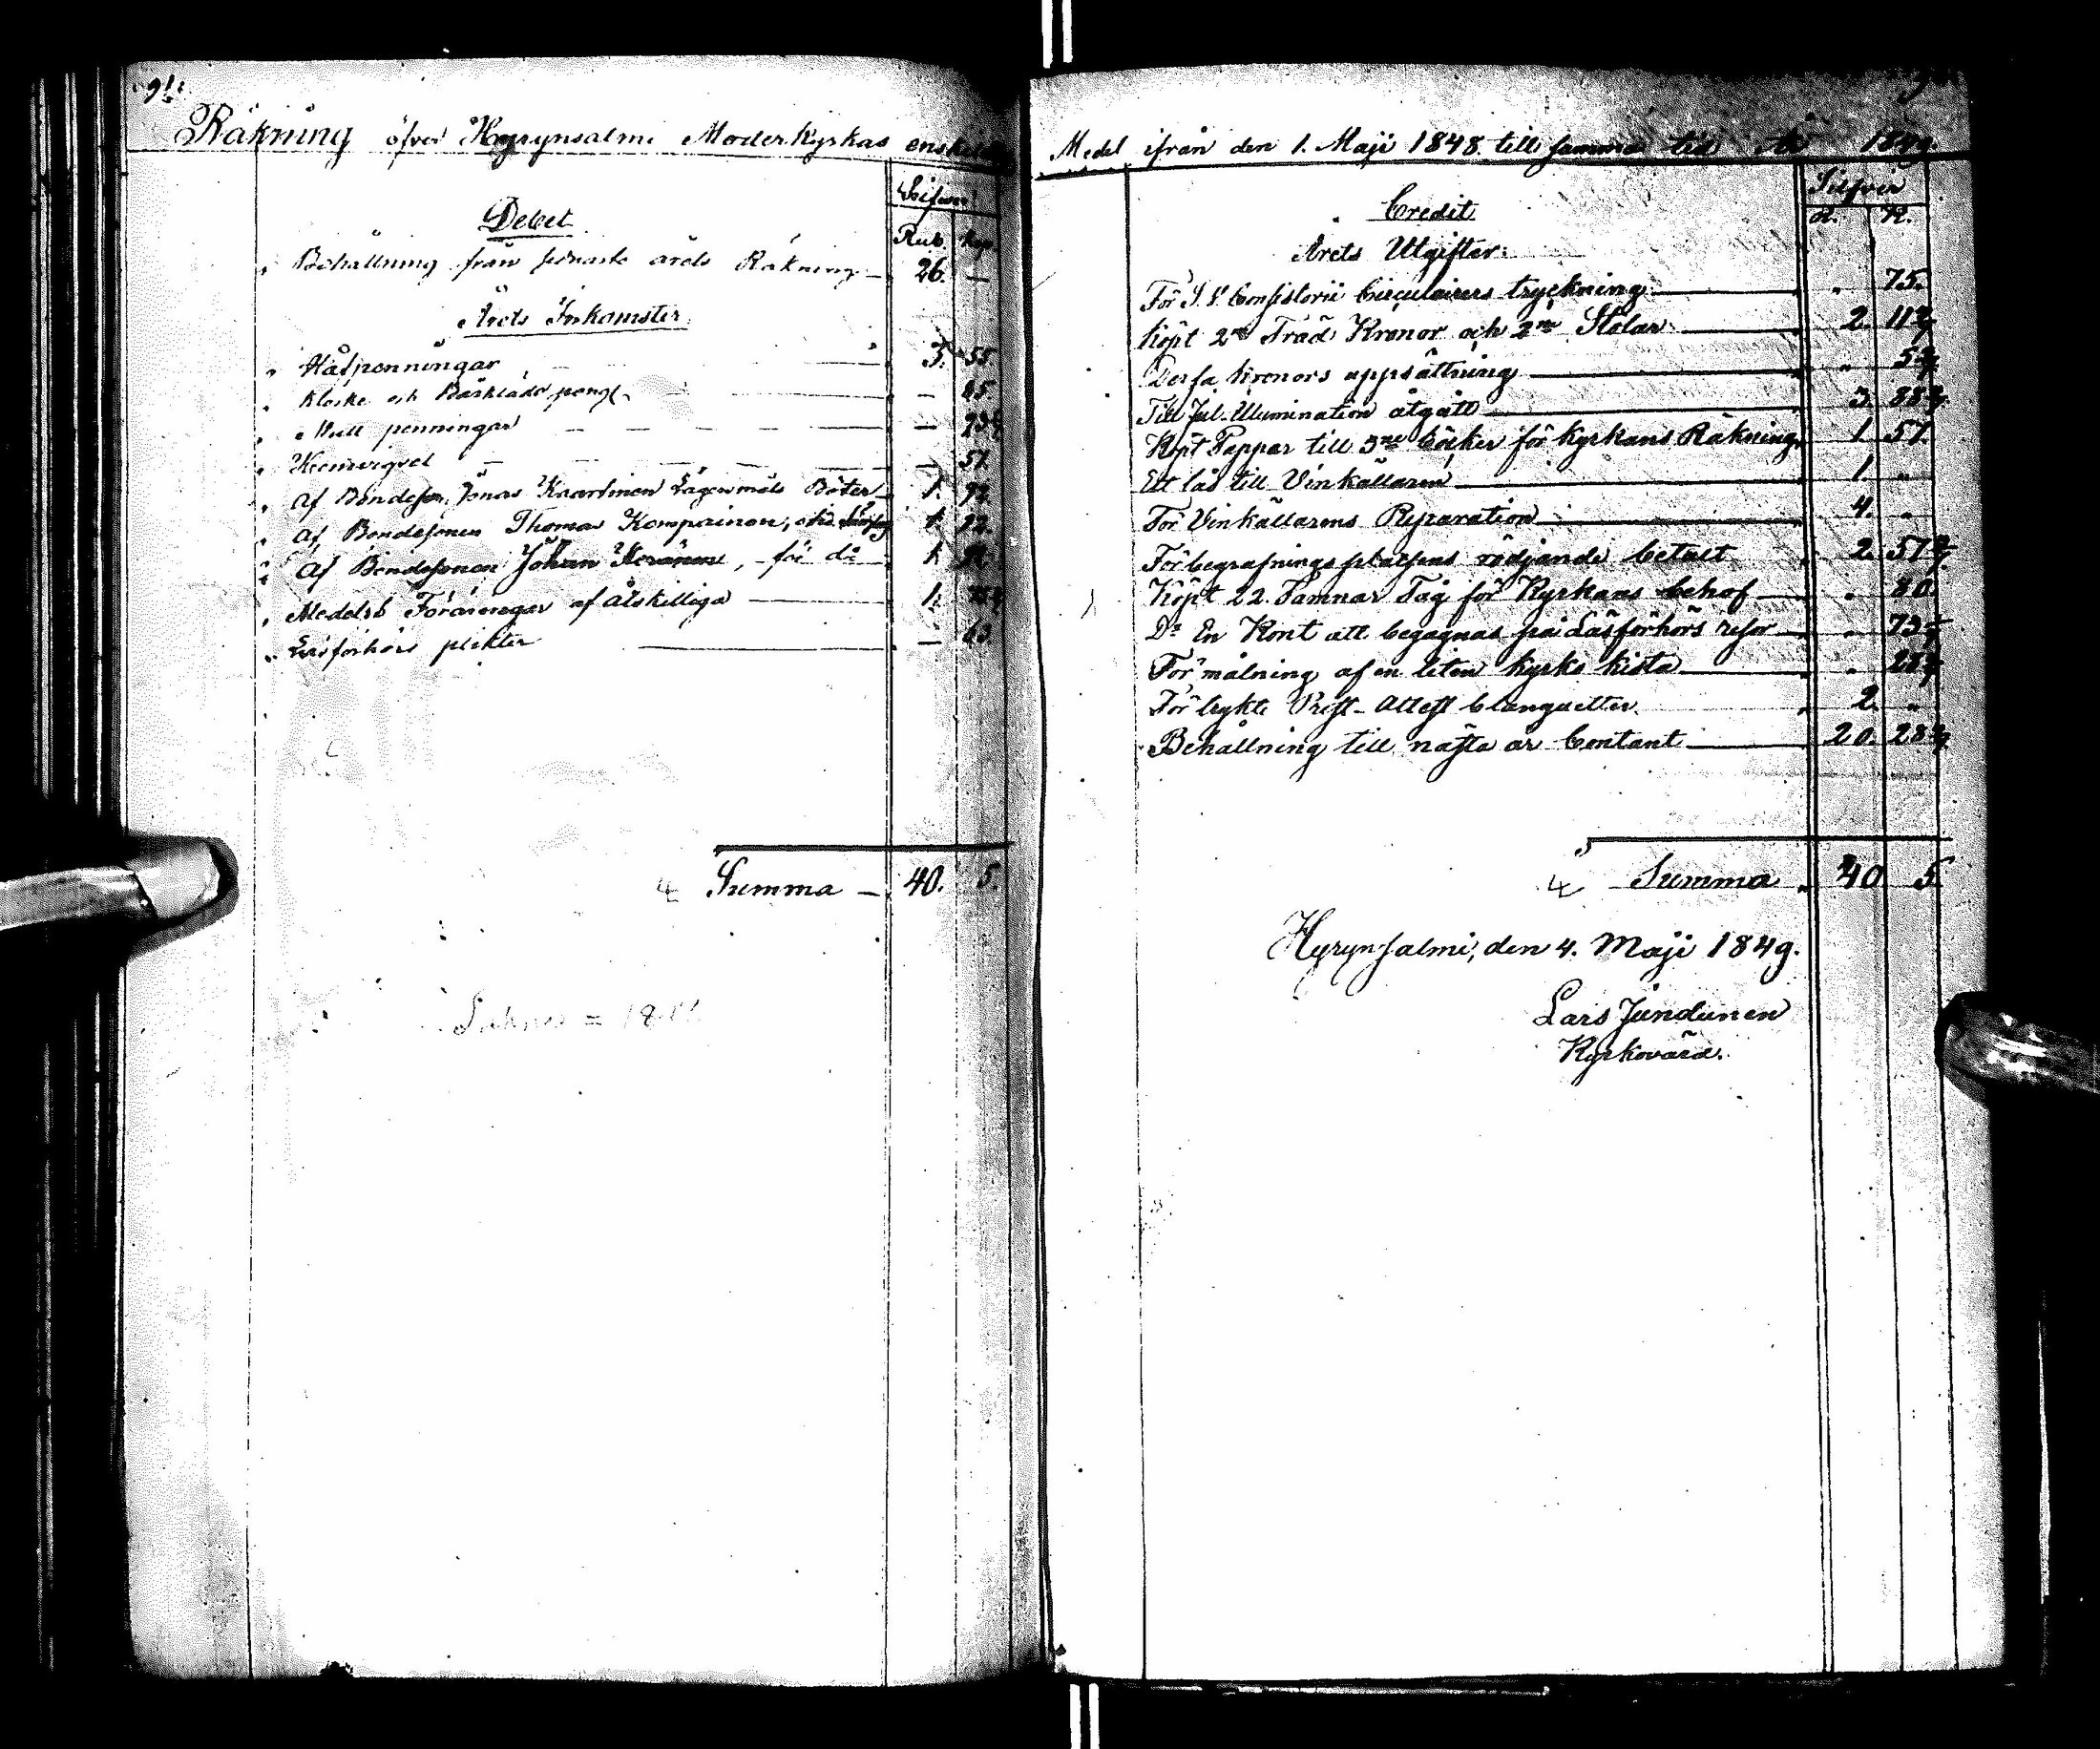 Räkning öfver Hyrynsalmi Moderkyrkas enskilda
Silfver
Debet
Rub. Kop.
Behållning från sednaste årets Räkning 26. —
Årets Inkomster
Håfpenningar 5. 55.
Klocke och Bårklädes peng. — 65
Mull penningar —
— 51.
Af Bondeson Jonas Lägersmåls Böter 1. 92.
Af Bondesonen Thomas Komppainen, 1. 92.
Af Bondesonen Johan Keränen, för do 1. 92.
Medelst Föräringar af Åtskilliga 1.
Läsförhörs plikter — 63.
Summa — 40. 5.
Medel ifrån den 1. Maji 1848 till samma tid År 1849.
Silfver
Credit
R. K.
Årets Utgifter:
För Consistorii Circulairers tryckning „ 75.
Köpt 2ne Träd Kronor och 2ne Stolar 2. 11 2/7
Dessa kronors uppsättning „ 5
Till Jul-Illumination åtgått 3. 88
Köpt Papper till 3ne böcker för Kyrkans Räkning 1. 51.
Ett lås till Vinkällaren 1. „
För Vinkällarens Reparation 4. „
För begrafningsplatsens rödjande betalt 2. 51
Köpt 22 Famnar Tåg för Kyrkans behof „ 80.
Do En Kont att begagnas på Läsförhörs resor „ 73
För målning af en liten kyrko kista „ 28
För trykte Prest-Attest blanquetter 2. „
Behållning till nästa år Contant 20. 28
Summa 40 5
Hyrynsalmi, den 4. Maji 1849.
Lars Juntunen
Kyrkovärd.